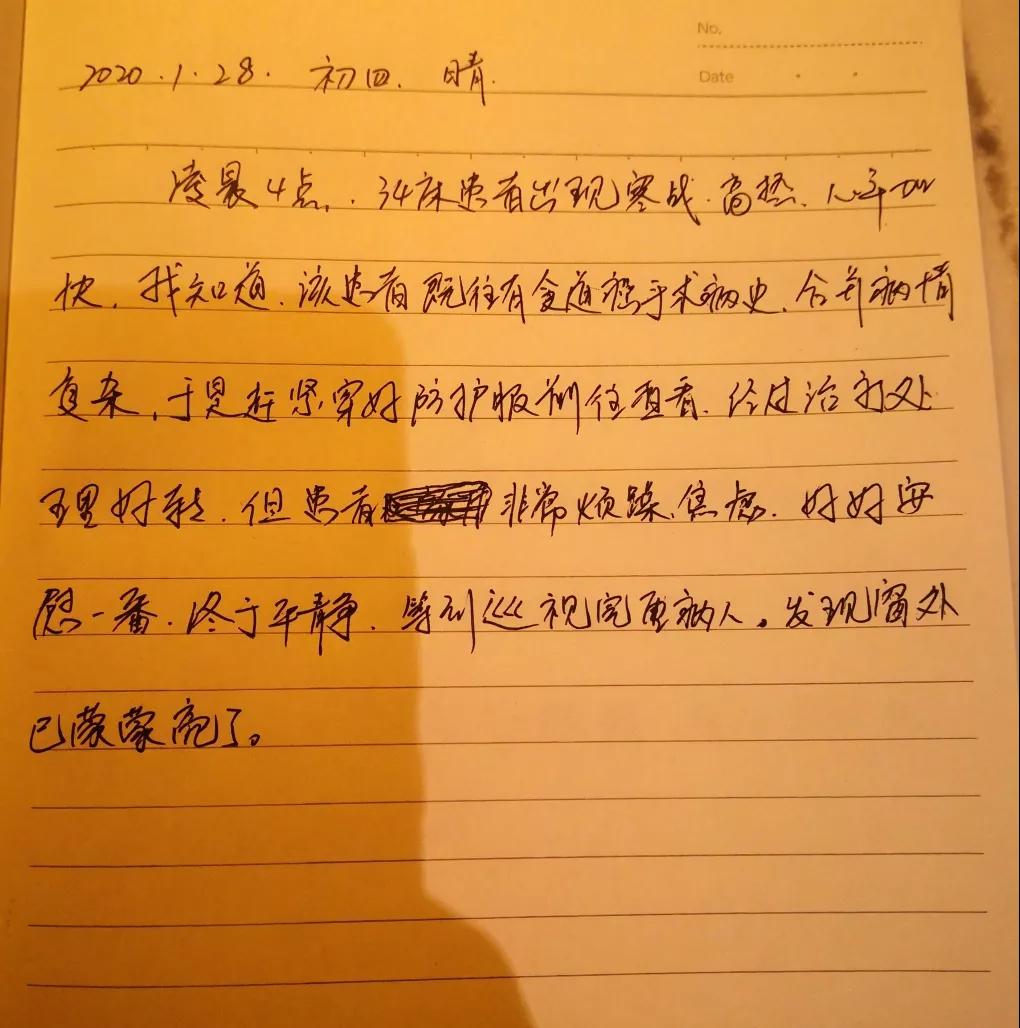 No.
Date
2020.1.28. 初四. 晴.
凌晨4点,. 34床患者出现寒战.高热.心率加
快,我知道.该患者既往有食道癌手术病史.合并病情
复杂,于是赶紧穿好防护服前往查看.经过治疗处
理好转.但患者非常烦躁.焦虑.好好安
慰一番.终于平静.等到巡视完重病人。发现窗外
已蒙蒙亮了。